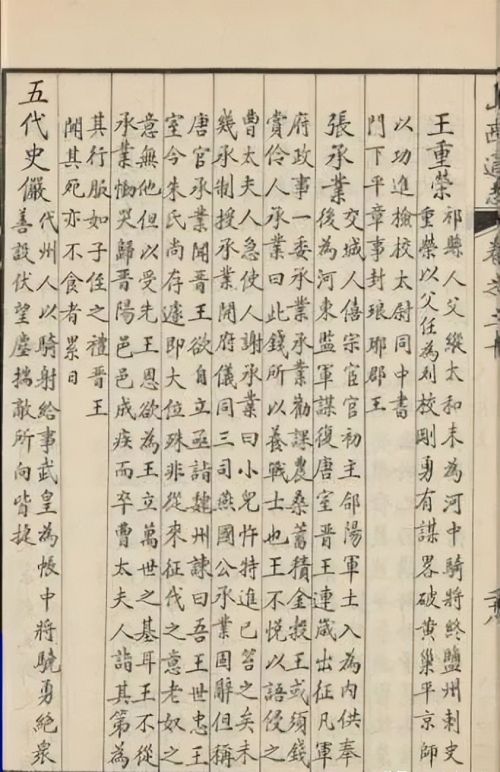 王重榮
祁縣人父縱太和末為河中騎將終鹽州刺史
重榮以父任為列校剛勇有謀畧破黃巢平京師
以功進檢校太尉同中書
門下平章事封琅琊郡王
張承業
交城人僖宗宦官初主郃陽軍士入為內供奉
後為河東監軍謀復唐室晉王連歲出征凡軍
府政事一委承業承業勸課農桑蓄積金穀王或須錢
賞伶人承業曰此錢所以養戰士也王不悅以語侵之
曹太夫人急使人謝承業曰小兒忤特進已笞之矣未
幾承制授承業開府儀同三司燕國公承業固辭但稱
唐官承業聞晉王欲自立亟詣魏州諫曰吾王世忠王
室今朱氏尚存遽即大位殊非從來征伐之意老奴之
意無他但以受先王恩欲為王立萬世之基耳王不從
承業慟哭歸晉陽邑邑成疾而卒曹太夫人詣其第為
其行服如子侄之禮晉王
聞其死亦不食者累日
五代史儼
代州人以騎射給事武皇為帳中將驍勇絶衆
善設伏望塵揣敵所向皆捷